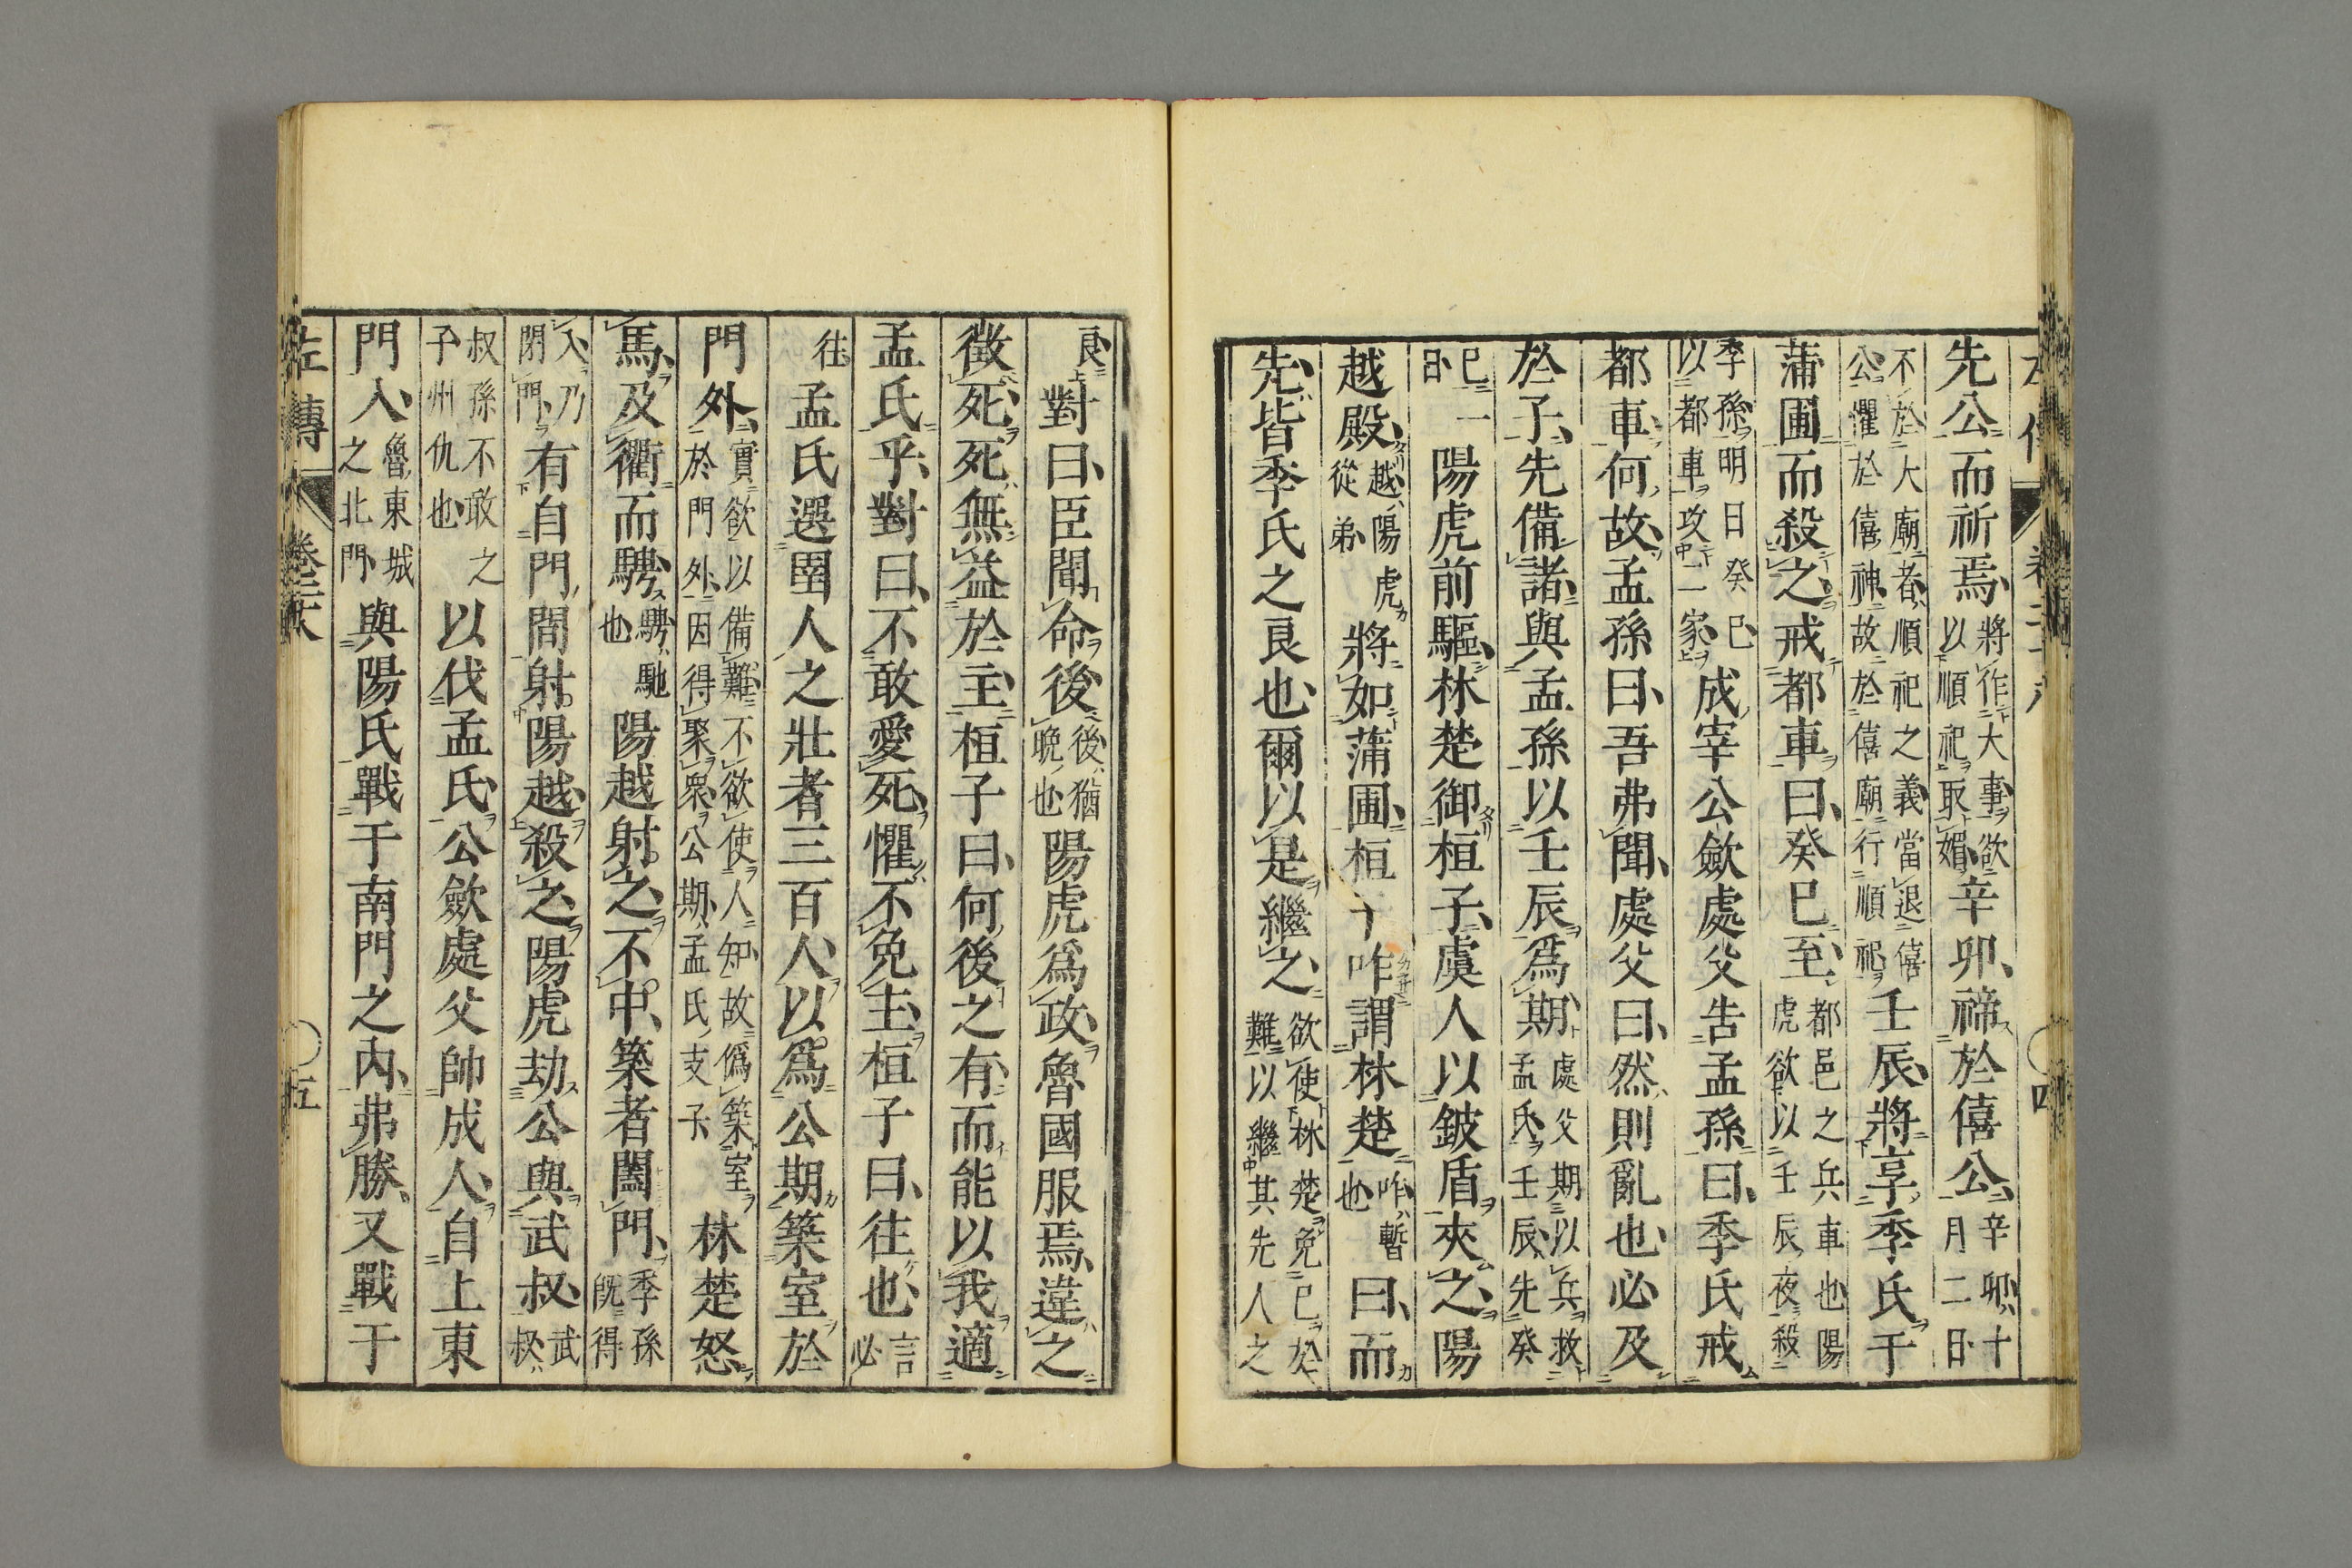 先公而祈焉將作大事欲以順祀取媚辛卯禘於僖公辛卯十月二日
不於大廟者順祀之義當退僖公懼於僖神故於僖廟行順祀壬辰將享季氏于
蒲圃而殺之戒都車曰癸巳至都邑之兵車也陽虎欲以壬辰夜殺
季孫明日癸巳以都車攻二家成宰公歛處父告孟孫曰季氏戒
都車何故孟孫曰吾弗聞處父曰然則亂也必及
於子先備諸與孟孫以壬辰爲期處父期以兵救孟氏壬辰先癸
巳一日陽虎前驅林楚御桓子虞人以鈹盾夾之陽
越殿越陽虎從弟將如蒲圃桓子咋謂林楚咋暫也曰而
先皆季氏之良也爾以是繼之欲使林楚免已於難以繼其先人之
良對曰臣聞命後後猶晩也陽虎爲政魯國服焉違之
徵死死無益於主桓子曰何後之有而能以我適
孟氏乎對曰不敢愛死懼不免主桓子曰往也言必
往孟氏選圉人之壯者三百人以爲公期築室於
門外實欲以備難不欲使人知故僞築室於門外因得聚衆公期孟氏支子林楚怒
馬及衢而騁騁馳也陽越射之不中築者闔門季孫既得
入乃閉門有自門間射陽越殺之陽虎劫公與武叔武叔
叔孫不敢之子州仇也以伐孟氏公歛處父帥成人自上東
門入魯東城之北門與陽氏戰于南門之內弗勝又戰于
左傳 卷二十八 五
四